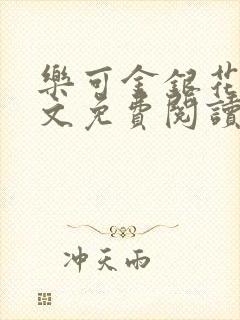 樂可金銀花
文免費閱讀
冲天雨